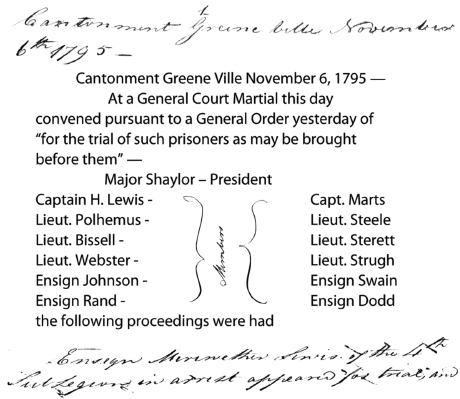 Cantonment Greene ville November
6th 1795 —
Cantonment Greene Ville November 6, 1795 —
At a General Court Martial this day
convened pursuant to a General Order yesterday of
“for the trial of such prisoners as may be brought
before them” —
Major Shaylor – President
Captain H. Lewis - Capt. Marts
Lieut. Polhemus - Lieut. Steele
Lieut. Bissell - Members Lieut. Sterett
Lieut. Webster - Lieut. Strugh
Ensign Johnson - Ensign Swain
Ensign Rand - Ensign Dodd
the following proceedings were had
Ensign Meriwether Lewis of the 4th
Sub Legion in arrest appeared for trial, and